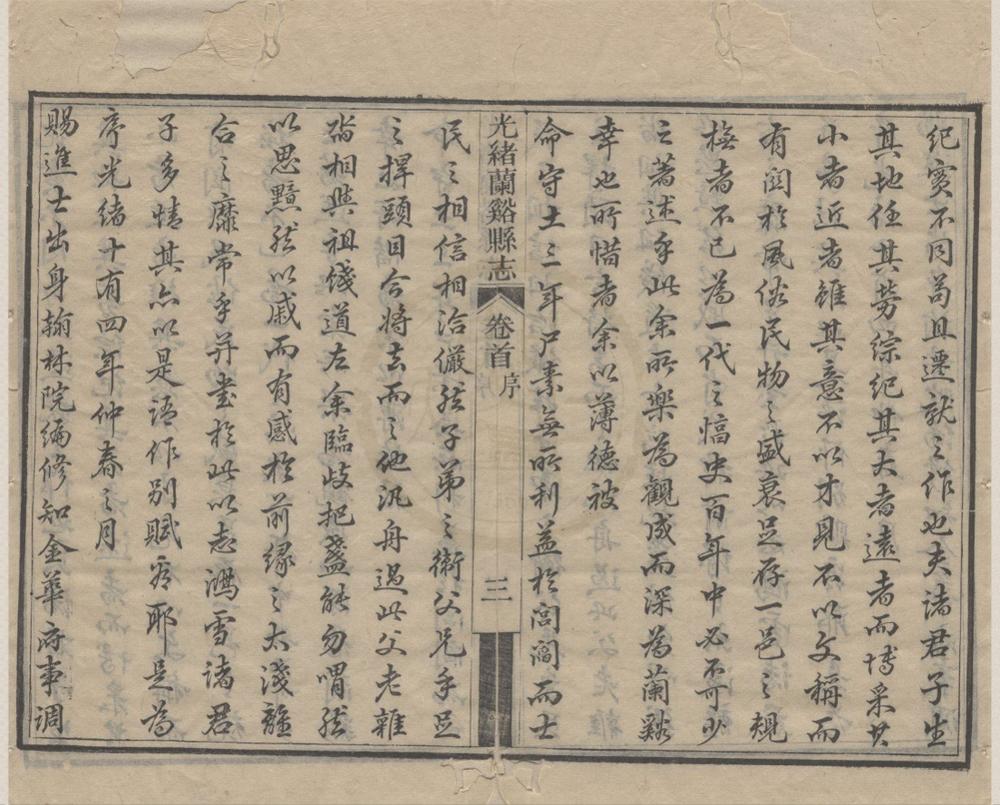 紀實不同苟且遷就之作也夫諸君子生
其地任其勞綜紀其大者遠者而博采其
小者近者雖其意不以才見不以文稱而
有関於風俗民物之盛衰足存一邑之規
橅者不已為一代之信史百年中必不可少
之著述乎此余所樂為觀成而深為蘭谿
幸也所惜者余以薄德被
命守土三年尸素無所利益於閭閻而士
光緒蘭谿縣志
卷首
序
三
民之相信相洽儼然子弟之衛父兄手足
之捍頭目今將去而之他汎舟過此父老雜
沓相與祖餞道左余臨歧把盞能勿喟然
以思黯然以戚而有感於前緣之太淺離
合之靡常乎幷書於此以志鴻雪諸君
子多情其亦以是語作別賦觀耶是為
序光緒十有四年仲春之月
賜進士出身翰林院編修知金華府事調